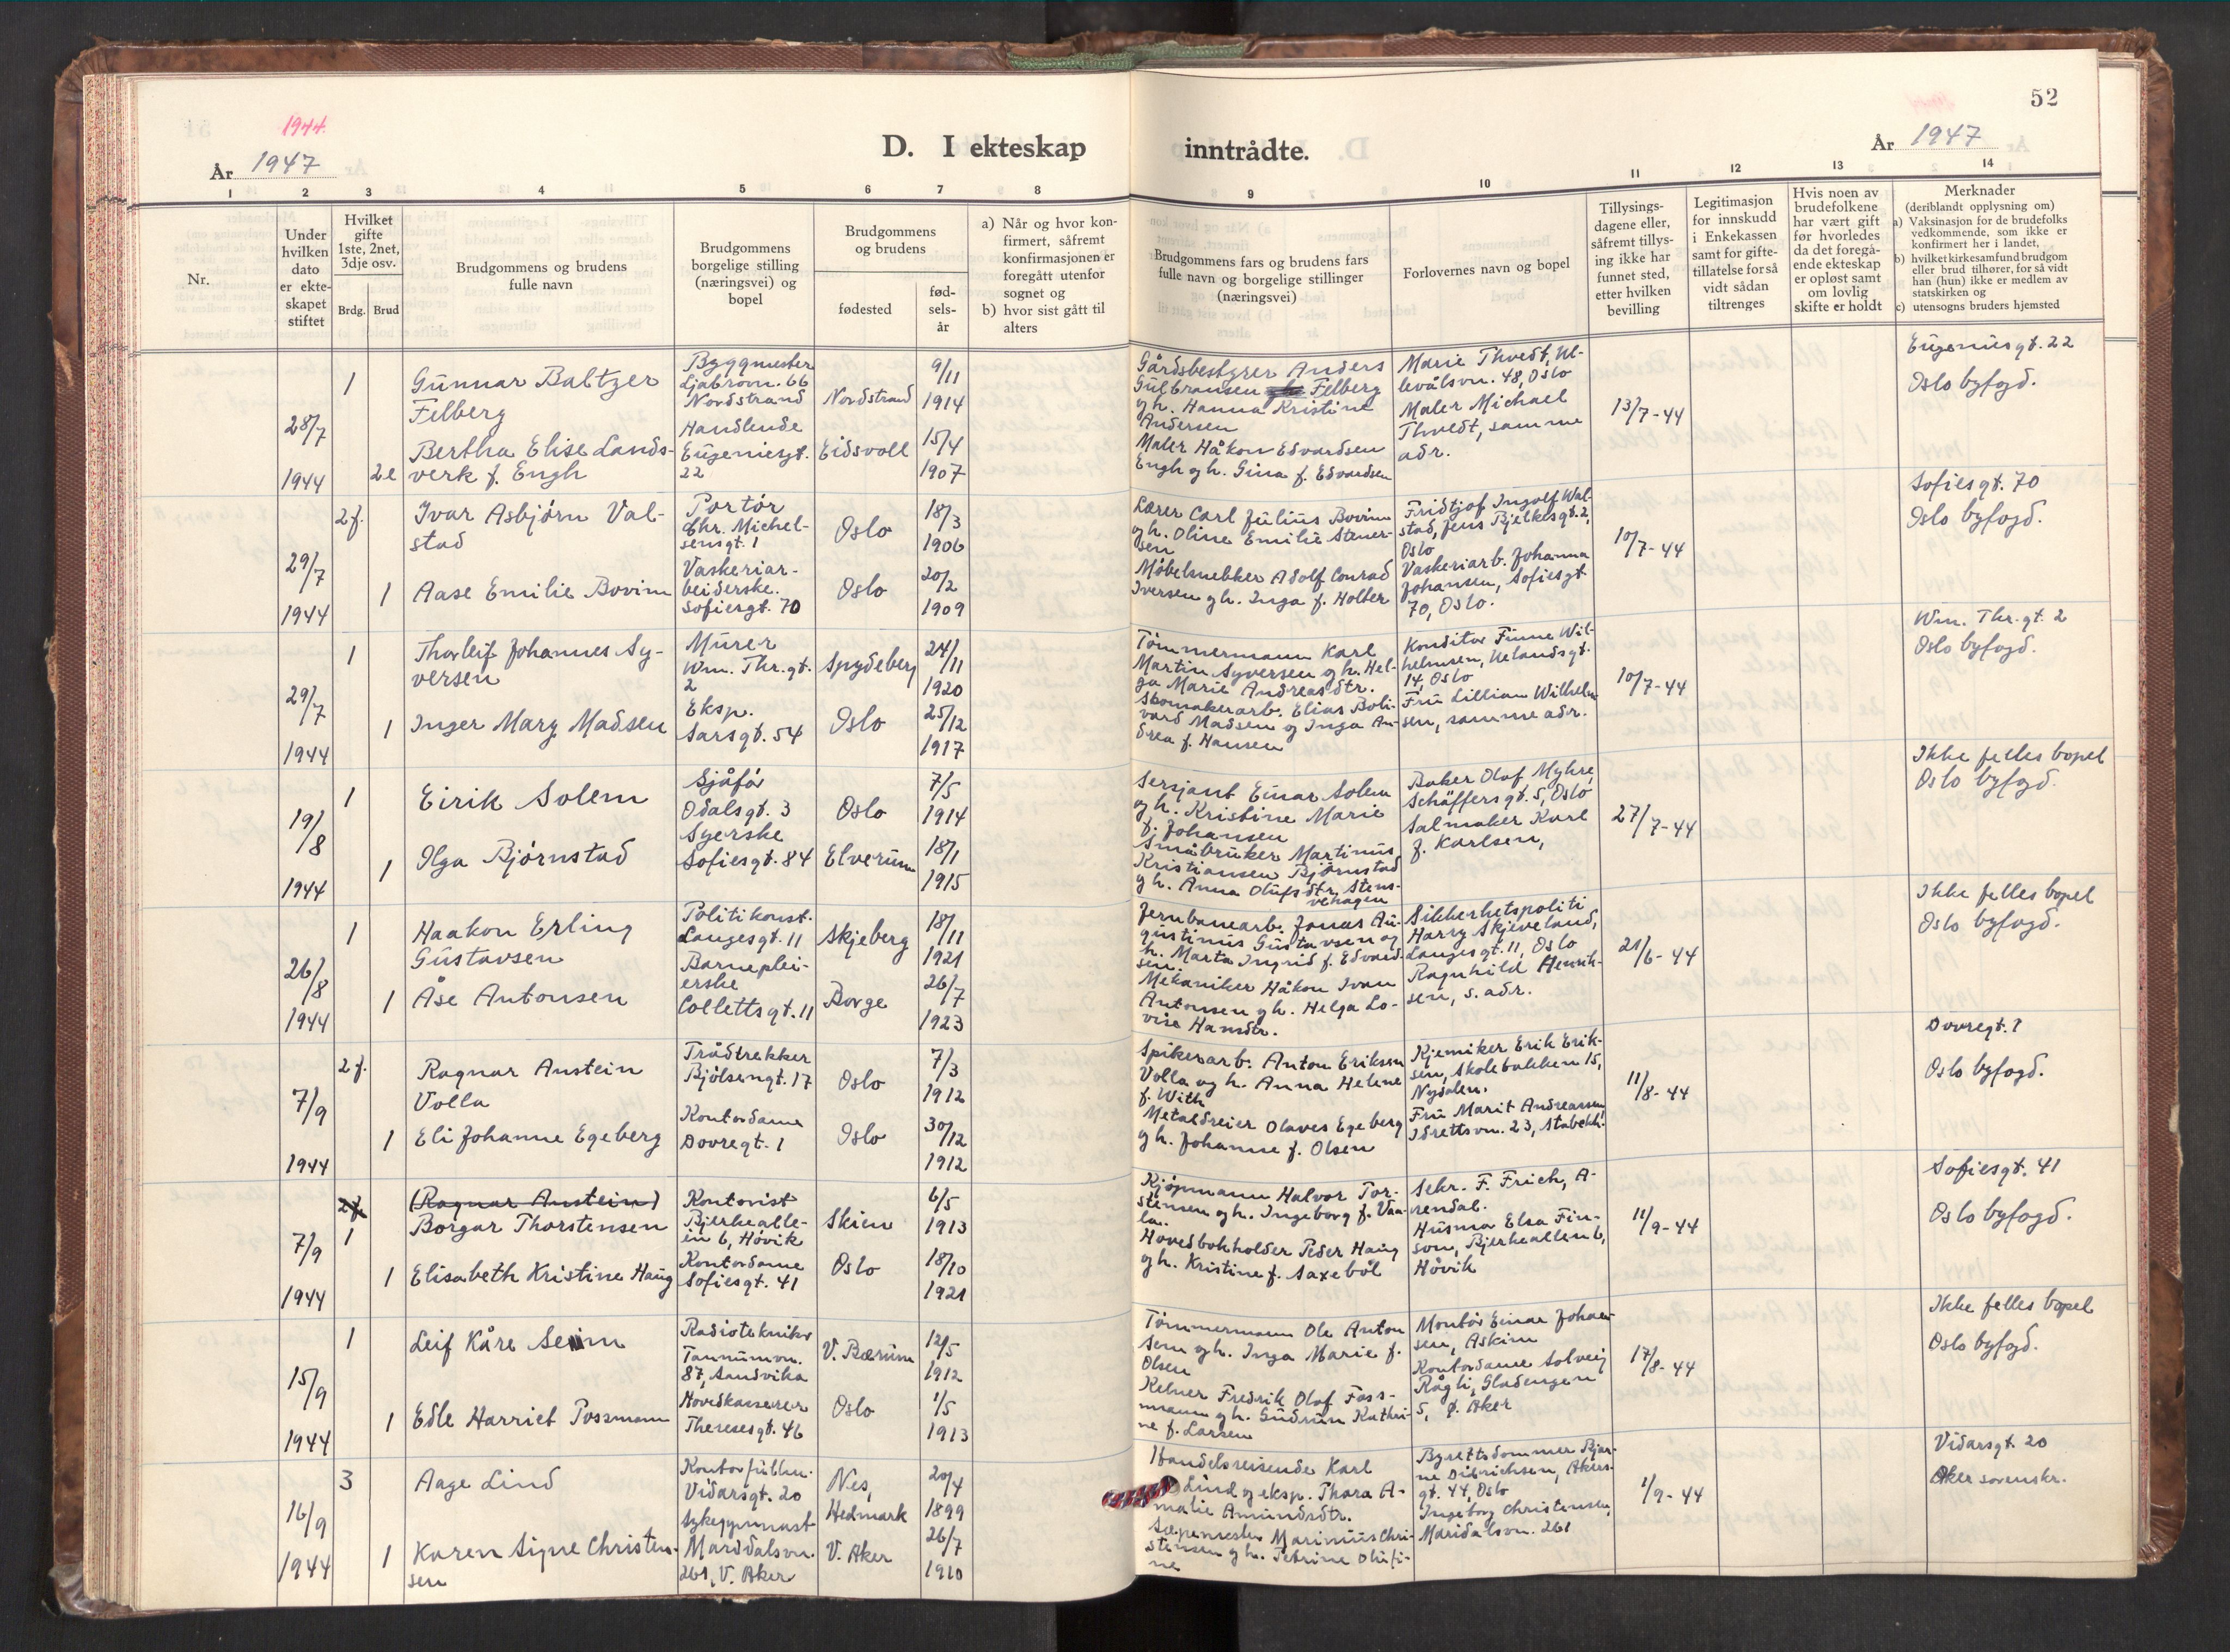 1944.
År 1947
D. I ekteskap
inntrådte.
52
År 1947
1 2 3 4 5 6 7 8
9 10 11 12 13 14
Nr.
Under
hvilken
dato
er ekte-
skapet
stiftet
Hvilket
gifte
1ste, 2net,
3dje osv.
Brdg. Brud
Brudgommens og brudens
fulle navn
Brudgommens
borgelige stilling
(næringsvei) og
bopel
Brudgommens
og brudens
fødested
fød-
sels-
år
a) Når og hvor kon-
firmert, såfremt
konfirmasjonen er
foregått utenfor
sognet og
b) hvor sist gått til
alters
Brudgommens fars og brudens fars
fulle navn og borgelige stillinger
(næringsvei)
Forlovernes navn og bopel
Tillysings-
dagene eller,
såfremt tillys-
ing ikke har
funnet sted,
etter hvilken
bevilling
Legitimasjon
for innskudd
i Enkekassen
samt for gifte-
tillatelse for så
vidt sådan
tiltrenges
Hvis noen av
brudefolkene
har vært gift
før hvorledes
da det foregå-
ende ekteskap
er opløst samt
om lovlig
skifte er holdt
Merknader
(deriblandt opplysning om)
a) Vaksinasjon for de brudefolks
vedkommende, som ikke er
konfirmert her i landet,
b) hvilket kirkesamfund brudgom
eller brud tilhører, for så vidt
han (hun) ikke er medlem av
statskirken og
c) utensogns bruders hjemsted
28/7
1944
1
2e
Gunnar Baltzer
Felberg
Bertha Elise Lands-
verk f. Engh
Byggmester
Ljabrovn. 66
Nordstrand
Handlende
Eugeniesgt.
22
Nordstrand
Eidsvoll
9/11
1914
15/4
1907
Gårdsbestyrer Anders
Gulbransen Felberg
og h. Hanna Kristine
Andersen
Maler Håkon Edvardsen
Engh og h. Gina f. Edvardsen
Marie Thvedt, Ul-
levålsvn. 48, Oslo
Maler Michael
Thvedt, samme
adr.
13/7-44
Eugeniusgt. 22
Oslo byfogd.
29/7
1944
2f.
1
Ivar Asbjørn Val-
stad
Aase Emilie Bovim
Portør
Chr. Michel-
sensgt. 1
Vaskeriar-
beiderske.
Sofiesgt. 70
Oslo
Oslo
18/3
1906
20/2
1909
Lærer Carl Julius Bovim
og h. Oline Emilie Stener-
sen
Møbelsnekker Adolf Conrad
Iversen og h. Inga f. Holter
Fridtjof Ingolf Wal-
stad, Jens Bjelkesgt. 2,
Oslo
Vaskeriarb. Johanna
Johansen, Sofiesgt
70, Oslo.
10/7-44
Sofiesgt. 70
Oslo byfogd.
29/7
1944
1
1
Thorleif Johannes Sy-
versen
Inger Mary Madsen
Murer
Wm. Thr. gt.
2
Eksp.
Sarsgt. 54
Spydeberg
Oslo
24/11
1920
25/12
1917
Tømmermann Karl
Martin Syversen og h. Hel-
ga Marie Andreasdtr.
Skomakerarb. Elias Boli-
vard Madsen og Inga An-
drea f. Hansen
Konditor Finne Wil-
helmsen, Uelandsgt.
14, Oslo
Fru Lillian Wilhelm-
sen, samme adr.
10/7-44
Wm. Thr. gt. 2
Oslo byfogd.
19/8
1944
1
1
Eirik Solem
Olga Bjørnstad
Sjåfør
Odalsgt. 3
Syerske
Sofiesgt. 84
Oslo
Elverum
7/5
1914
18/1
1915
Sersjant Einar Solem
og h. Kristine Marie
f. Johansen
Småbruker Martinus
Kristiansen Bjørnstad
og h. Anna Olufsdtr. Stens-
vehagen
Baker Olaf Myhre,
Schäffersgt. 5, Oslo
Salmaker Karl
J. Karlsen,
27/7-44
Ikke felles bopel
Oslo byfogd.
26/8
1944
1
1
Haakon Erling
Gustavsen
Åse Antonsen
Politikonst.
Langesgt. 11
Barneplei-
erske
Collettsgt. 11
Skjeberg
Borge
18/11
1921
26/7
1923
Jernbanearb. Jonas Au-
gustinus Gustavsen og
h. Marta Ingrid f. Edvard-
sen.
Mekaniker Håkon Ivan
Antonsen og h. Helga Lo-
vise Hansdtr.
Sikkerhetspoliti
Harry Skjeveland,
Langesgt. 11, Oslo
Ragnhild Henrik-
sen, s. adr.
21/6-44
Ikke felles bopel
Oslo byfogd.
7/9
1944
2f.
1
Ragnar Austein
Volla
Eli Johanne Egeberg
Trådtrekker
Bjølsengt. 17
Kontordame
Dovregt. 1
Oslo
Oslo
7/3
1912
30/12
1912
Spikerarb. Anton Eriksen
Volla og h. Anna Helene
f. With
Metaldreier Olaves Egeberg
og h. Johanne f. Olsen
Kjemiker Erik Erik-
sen, Skolebakken 15,
Nydalen.
Fru Marit Andreassen,
Idrettsvn. 23, Stabekk.
11/8-44
Dovregt. 1
Oslo byfogd.
7/9
1944
2f.
1
1
(Ragnar Austein)
Borgar Thorstensen
Elisabeth Kristine Haug
Kontorist
Bjerkealle-
en 6, Høvik
Kontordame
Sofiesgt. 41
Skien
Oslo
6/5
1913
18/10
1921
Kjøpmann Halvor Tor-
stensen og h. Ingeborg f. Vaa-
la.
Hovedbokholder Peder Haug
og h. Kristine f. Saxebøl
Sekr. F. Frich, A-
rendal.
Husmor Elsa Fin-
son, Bjerkealleen 6,
Høvik
11/9-44
Sofiesgt. 41
Oslo byfogd.
15/9
1944
1
1
Leif Kåre Seim
Edle Harriet Possmann
Radiotekniker
Tannumvn.
87, Sandvika
Hovedkasserer
Theresesgt. 46
V. Bærum
Oslo
12/5
1912
1/5
1913
Tømmermann Ole Anton
Sem og h. Inga Marie f.
Olsen
Kelner Fredrik Olaf Foss-
mann og h. Gudrun Kathri-
ne f. Larsen
Montør Einar Johan-
sen, Askim
Kontordame Solveig
Rågli, Gladengen
5, Ø. Aker
17/8-44
Ikke felles bopel
Oslo byfogd.
16/9
1944
3
1
Aage Lind
Karen Signe Christen-
sen
Kontorfullm.
Vidarsgt. 20
Sykegymnast
Maridalsvn.
261, V. Aker
Nes,
Hedmark
V. Aker
20/4
1899
26/7
1910
Handelsreisende Karl
Lind og eksp. Thora A-
malie Amundsdtr.
Marinius Chri-
stensen og h. Petrine Olufi-
ne
Byrettsdommer Bjar-
ne Didrichsen, Akers-
gt. 44, Oslo
Ingeborg Christensen,
Maridalsvn. 261
1/9-44
Vidarsgt. 20
Aker sorenskr.